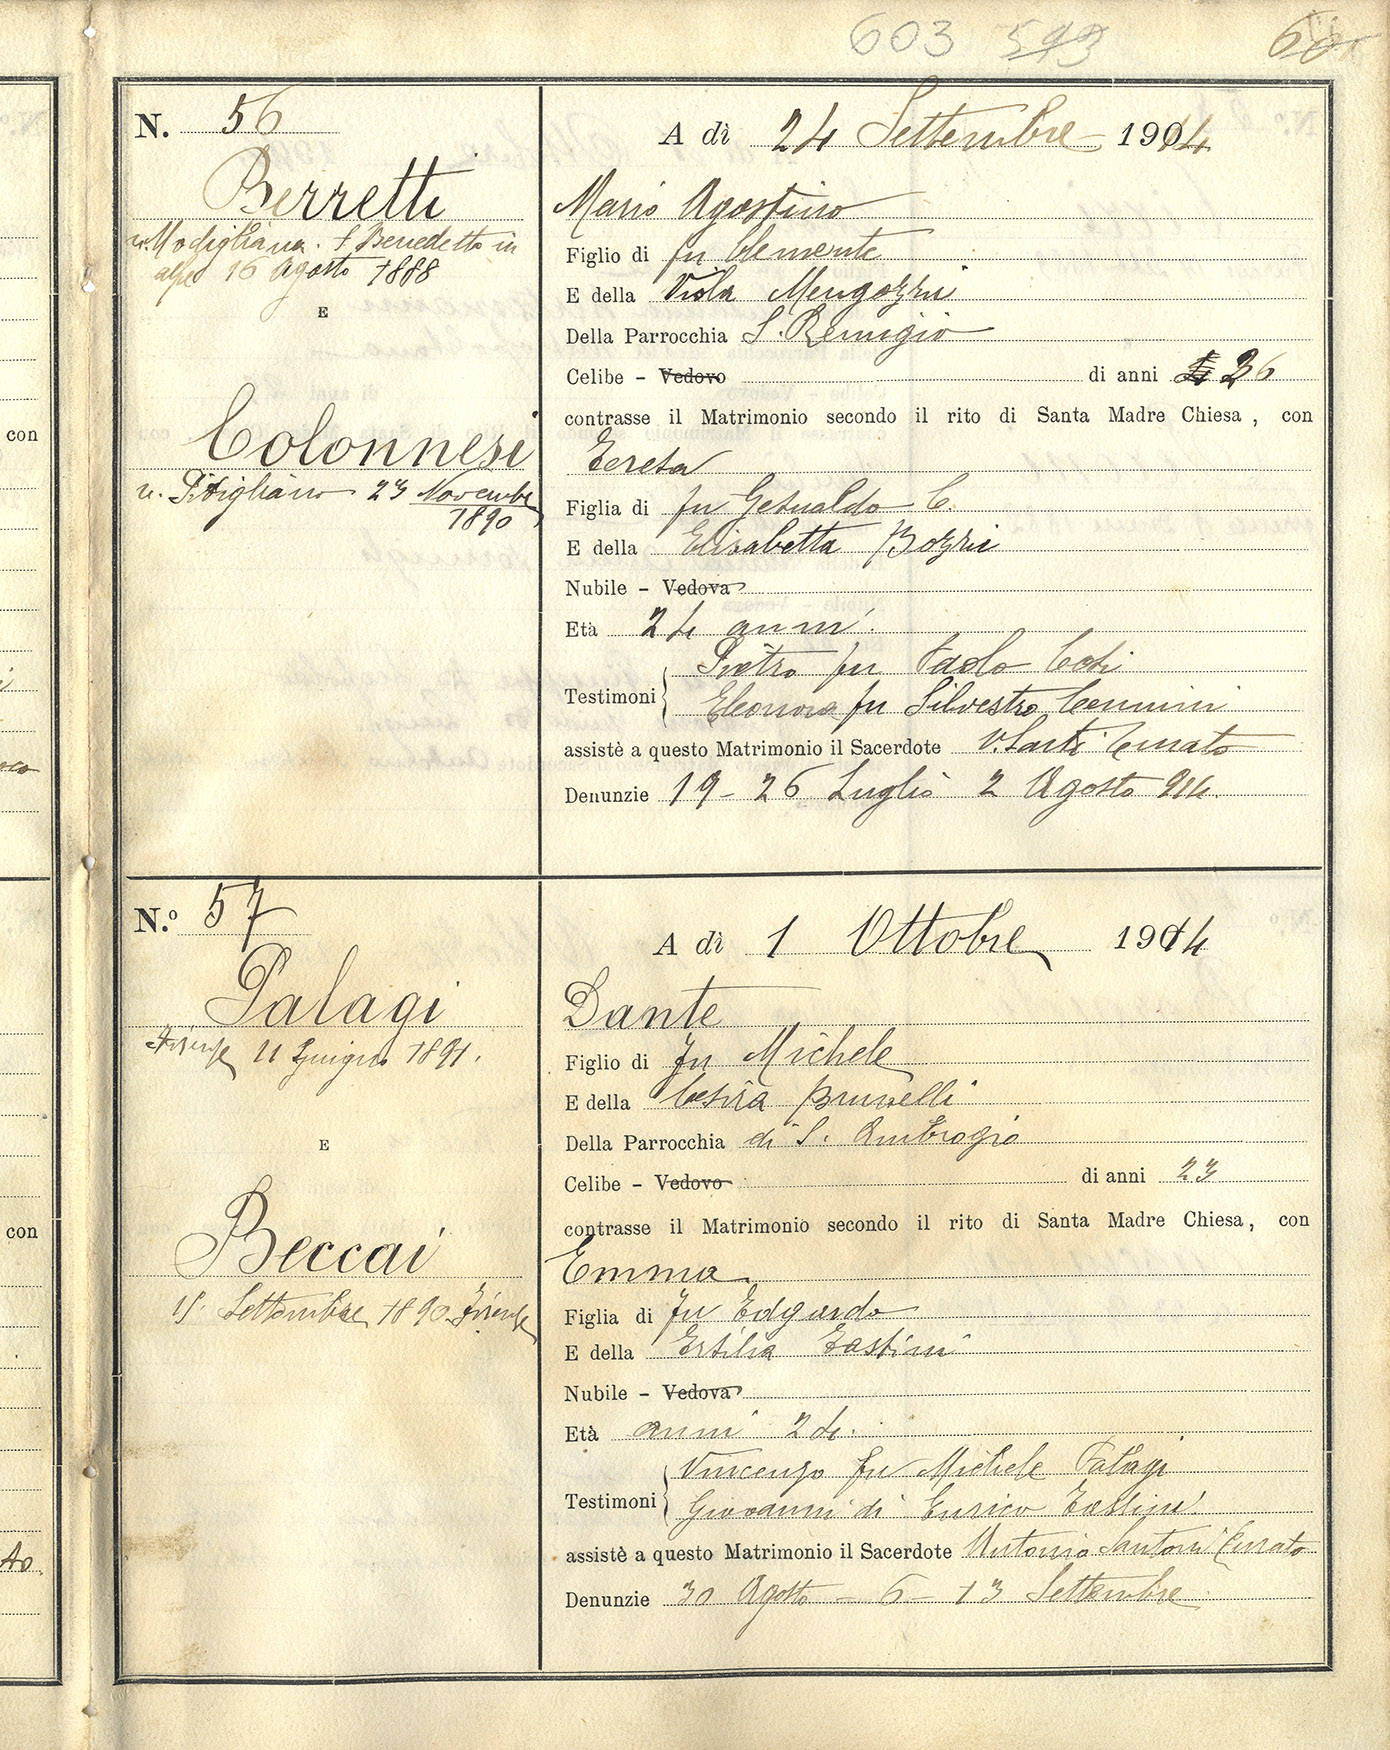 603 593 60
N. 56
Berretti
n. Modigliana. S. Benedetto in
alpe 16 Agosto 1888
E
Colonnesi
n. Pitigliano 23 Novembre
1890
A dì 24 Settembre 1914
Mario Agostino
Figlio di fu Clemente
E della Viola Mengozzi
Della Parrocchia S. Remigio
Celibe – Vedovo di anni 26
contrasse il Matrimonio secondo il rito di Santa Madre Chiesa, con
Teresa
Figlia di fu Gesualdo C.
E della Elisabetta Bozzi
Nubile – Vedova
Età 24 anni.
Testimoni Pietro fu Paolo
Eleonora fu Silvestro
assistè a questo Matrimonio il Sacerdote Curato
Denunzie 19 – 26 Luglio 2 Agosto 914.
N.º 57
Palagi
Firenze 11 Giugno 1891.
E
Beccai
Settembre 1890 Firenze
A dì 1 Ottobre 1914
Dante
Figlio di fu Michele
E della Cesira Brunelli
Della Parrocchia di S. Ambrogio
Celibe – Vedovo di anni 23
contrasse il Matrimonio secondo il rito di Santa Madre Chiesa, con
Emma
Figlia di fu Edgardo
E della Ersilia Tastini
Nubile – Vedova
Età anni 24.
Testimoni Vincenzo fu Michele Palagi
Giovanni di Enrico Tastini
assistè a questo Matrimonio il Sacerdote Antonio Santoni Curato
Denunzie 30 Agosto – 6 – 13 Settembre
con
con